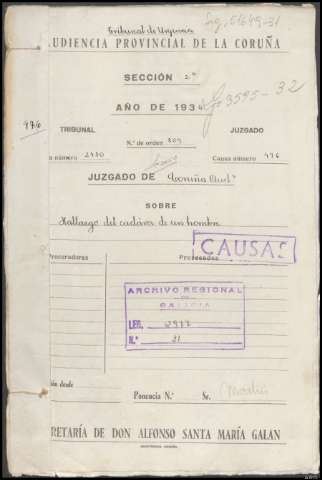 Tribunal de Urgencia
AUDIENCIA PROVINCIAL DE LA CORUÑA
SECCIÓN 2ª
AÑO DE 1934
3595-32
976
TRIBUNAL JUZGADO
N.º de orden 809
número 2430 Causa número 976
JUZGADO DE Coruña
SOBRE
Hallazgo del cadáver de un hombre
CAUSAS
Procuradores Procesados
ARCHIVO REGIONAL
DE
GALICIA
LEG. 2977
N.º 31
ión desde
Ponencia N.º Sr.
RETARÍA DE DON ALFONSO SANTA MARÍA GALAN